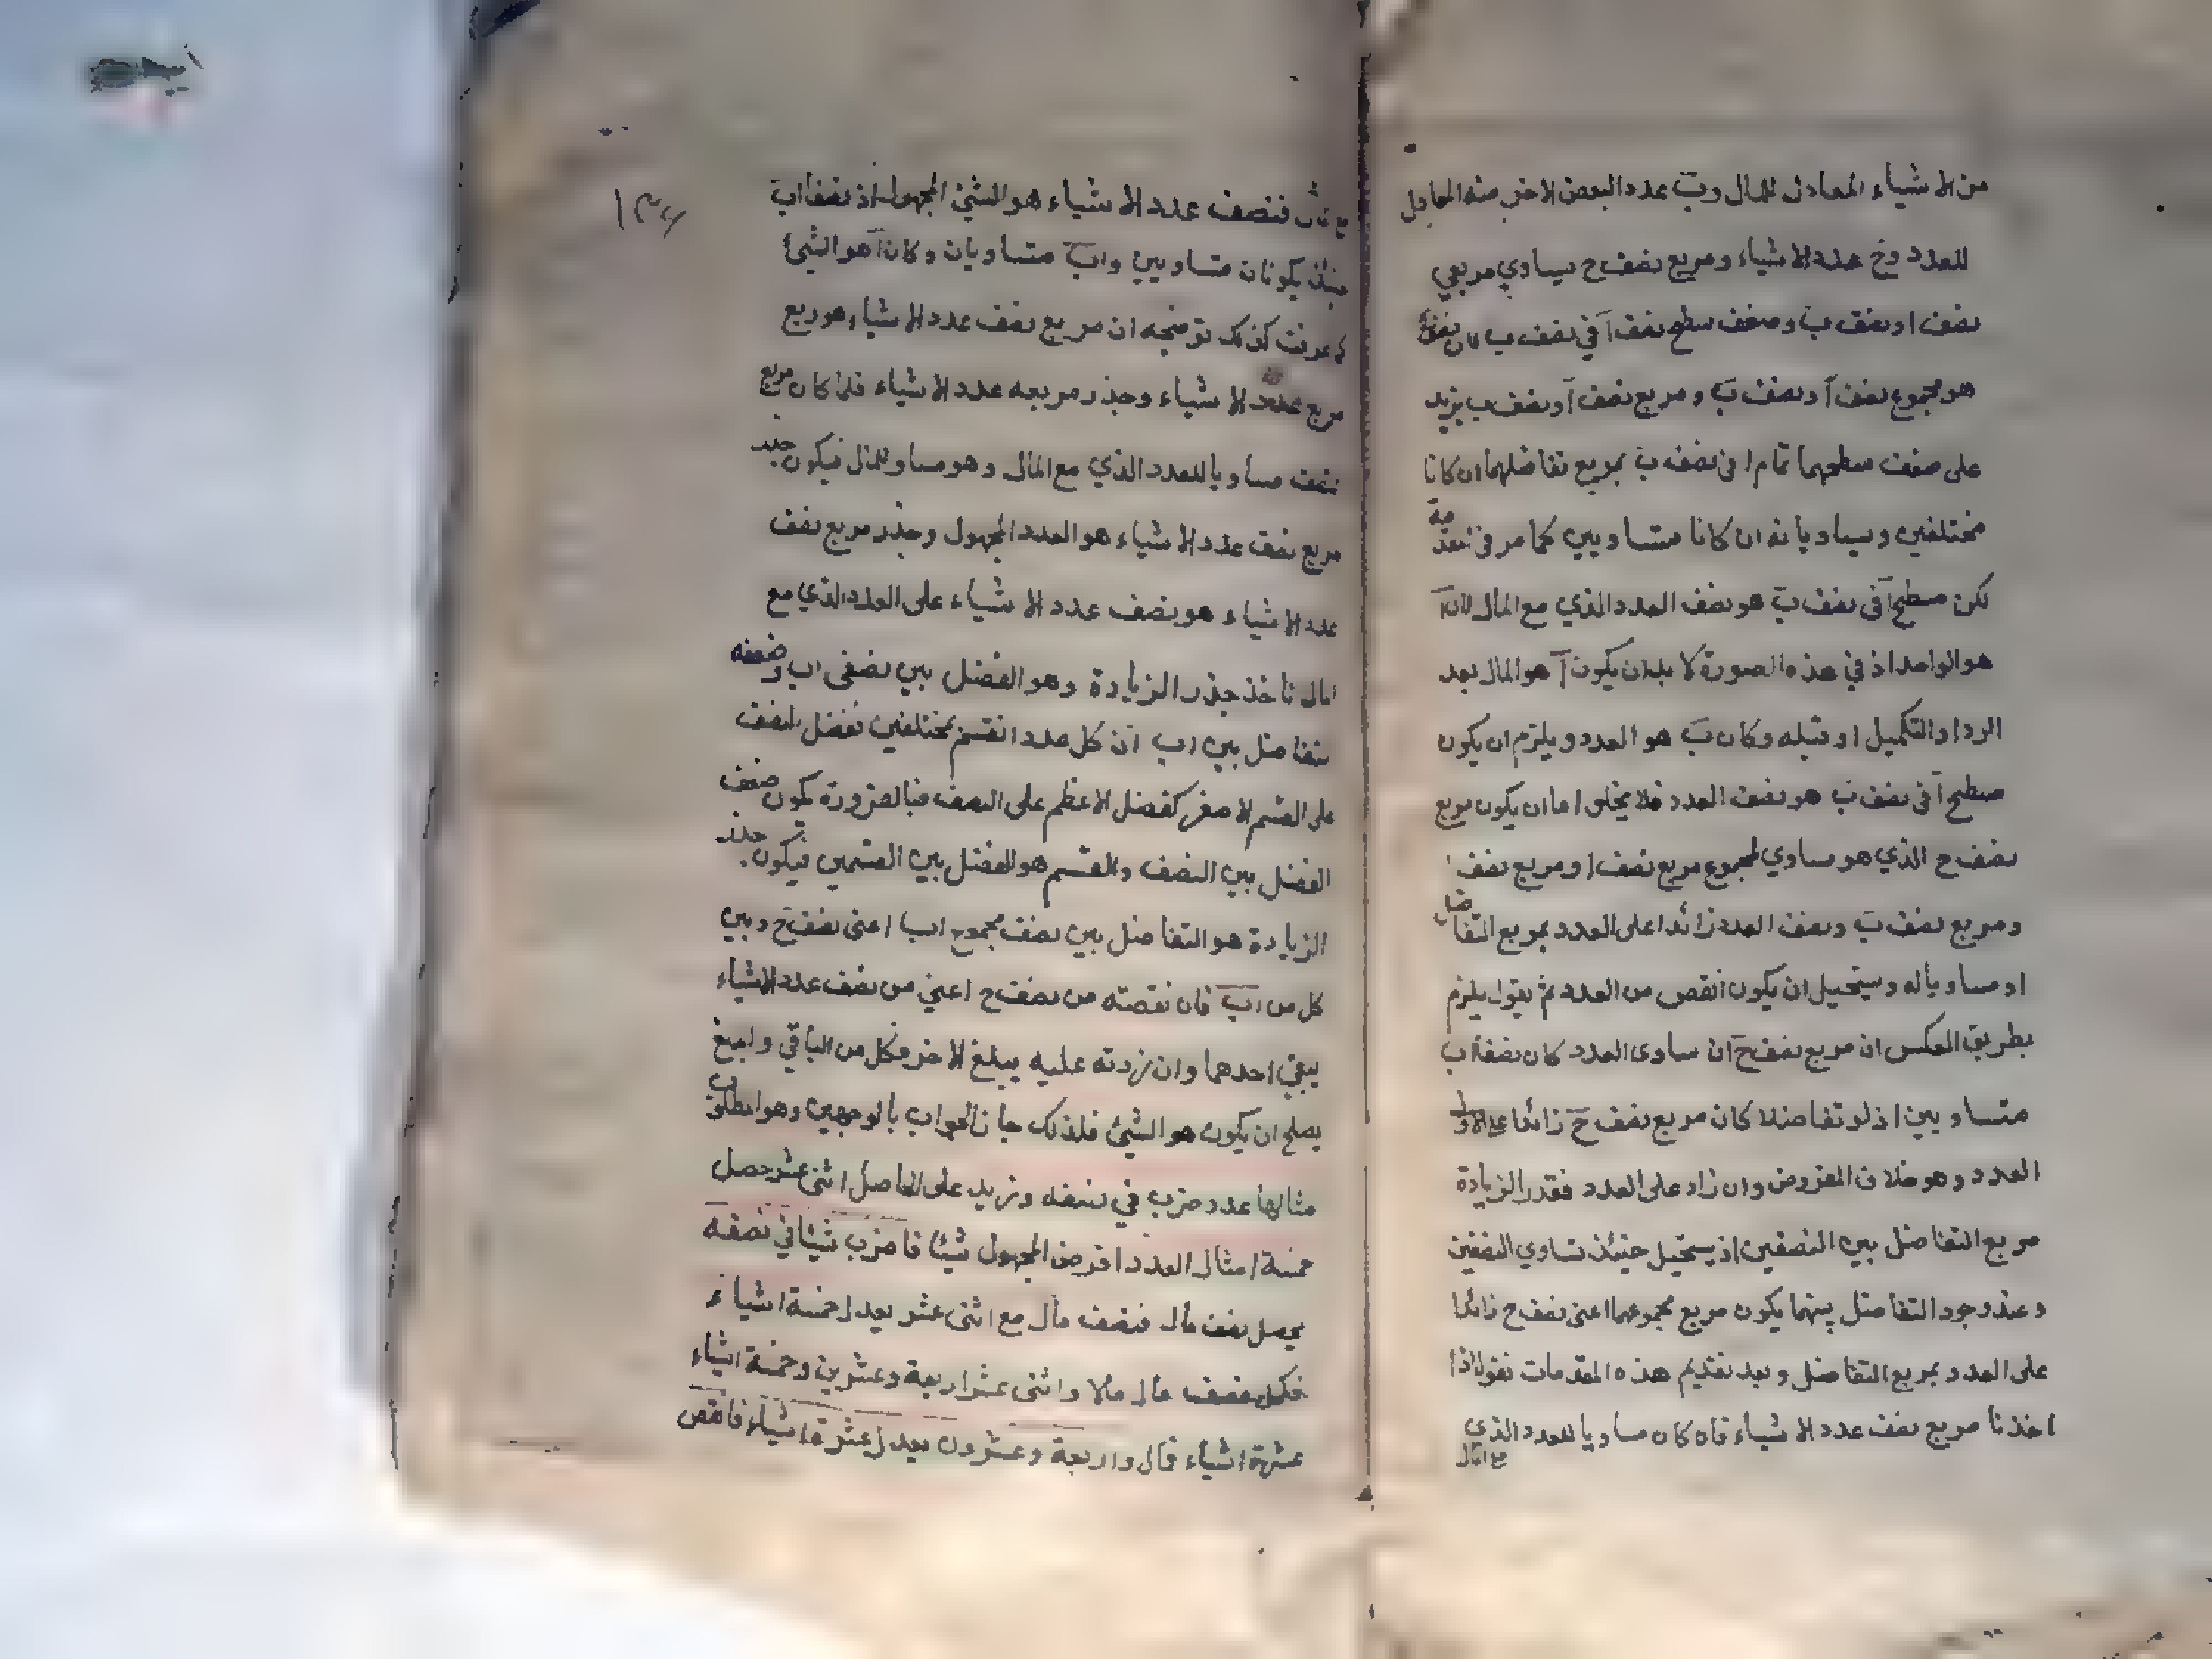 من الاشياء المعادل للمال وب عدد البعض الاخر منه المعادل
للعدد وح عدد الاشياء ومربع نصف ح يساوي مربعي
نصف ا ونصف ب وضعف سطح نصف ا في نصف ب لان نصفه
هو مجموع نصف ا ونصف ب ومربع نصف ا ونصف ب يزيد
على ضعف سطحهما تمام ا في نصف ب بمربع تفاضلهما ان كانا
مختلفين ويساويانه ان كانا متساويين كما مر في المقدمة
لكن مسطح ا في نصف ب هو نصف العدد الذي مع المال لان
هو الواحد اذ في هذه الصورة لا بد ان يكون ا هو المال بعد
الرد او التكميل او قبله وكان ب هو العدد ويلزم ان يكون
مسطح ا في نصف ب هو نصف العدد فلا يخلو اما ان يكون مربع
نصف ح الذي هو مساوي لمجموع مربع نصف ا ومربع نصف
ومربع نصف ب ونصف العدد زائدا على العدد بمربع التفاضل
او مساويا له ويستحيل ان يكون انقص من العدد ثم يقول يلزم
بطريق العكس ان مربع نصف ح ان ساوى العدد كان نصفا ا ب
متساويين اذ لو تفاضلا كان مربع نصف ح زائدا على
العدد وهو خلاف المفروض وان زاد على العدد فقدر الزيادة
مربع التفاضل بين النصفين اذ يستحيل حينئذ تساوي النصفين
وعند وجود التفاضل بينهما يكون مربع مجموعهما اعنى نصف ح زائدا
على العدد بمربع التفاضل وبعد تقديم هذه المقدمات نقول اذا
اخذنا مربع نصف عدد الاشياء فان كان مساويا للعدد الذي
مع المال
١٣٤
فنصف عدد الاشياء هو الشيئ المجهول اذ نصفا ا ب
حينئذ يكونان متساويين وا ب متساويان وكان ا هو الشيئ
كما عرفت كذلك توضيحه ان مربع نصف عدد الاشياء هو ربع
مربع عدد الاشياء وجذر مربعه عدد الاشياء فلما كان مربع
نصف مساويا للعدد الذي مع المال وهو مساو للمال فيكون جذر
مربع نصف عدد الاشياء هو العدد المجهول وجذر مربع نصف
عدد الاشياء هو نصف عدد الاشياء على العدد الذي مع
المال ناخذ جذر الزيادة وهو الفضل بين نصفى ا ب وضعفه
يتفاضل بين ا ب ان كل عدد انقسم بمختلفين تفضل النصف
على القسم الاصغر كفضل الاعظم على النصف فبالضرورة يكون ضعف
الفضل بين النصف والقسم هو الفضل بين القسمين فيكون جذر
الزيادة هو التفاضل بين نصف مجموع ا ب اعنى نصف ح وبين
كل من ا ب فان نقصته من نصف ح اعني من نصف عدد الاشياء
يبقى احدهما وان زدته عليه يبلغ الاخر فكل من الباقي والمبلغ
يصلح ان يكون هو الشيئ فلذلك جاز الجواب بالوجهين وهو المطلوب
مثالها عدد ضرب في نصفه وزيد على الحاصل اثنى عشر حصل
خمسة امثال العدد افرض المجهول شيئا فاضرب شيئا في نصفه
يحصل نصف مال فنصف مال مع اثنى عشر يعدل خمسة اشياء
فكمل نصف مال مالا واثنى عشر اربعة وعشرين وخمسة اشياء
عشرة اشياء فمال واربعة وعشرون يعدل عشرة اشياء فانقص